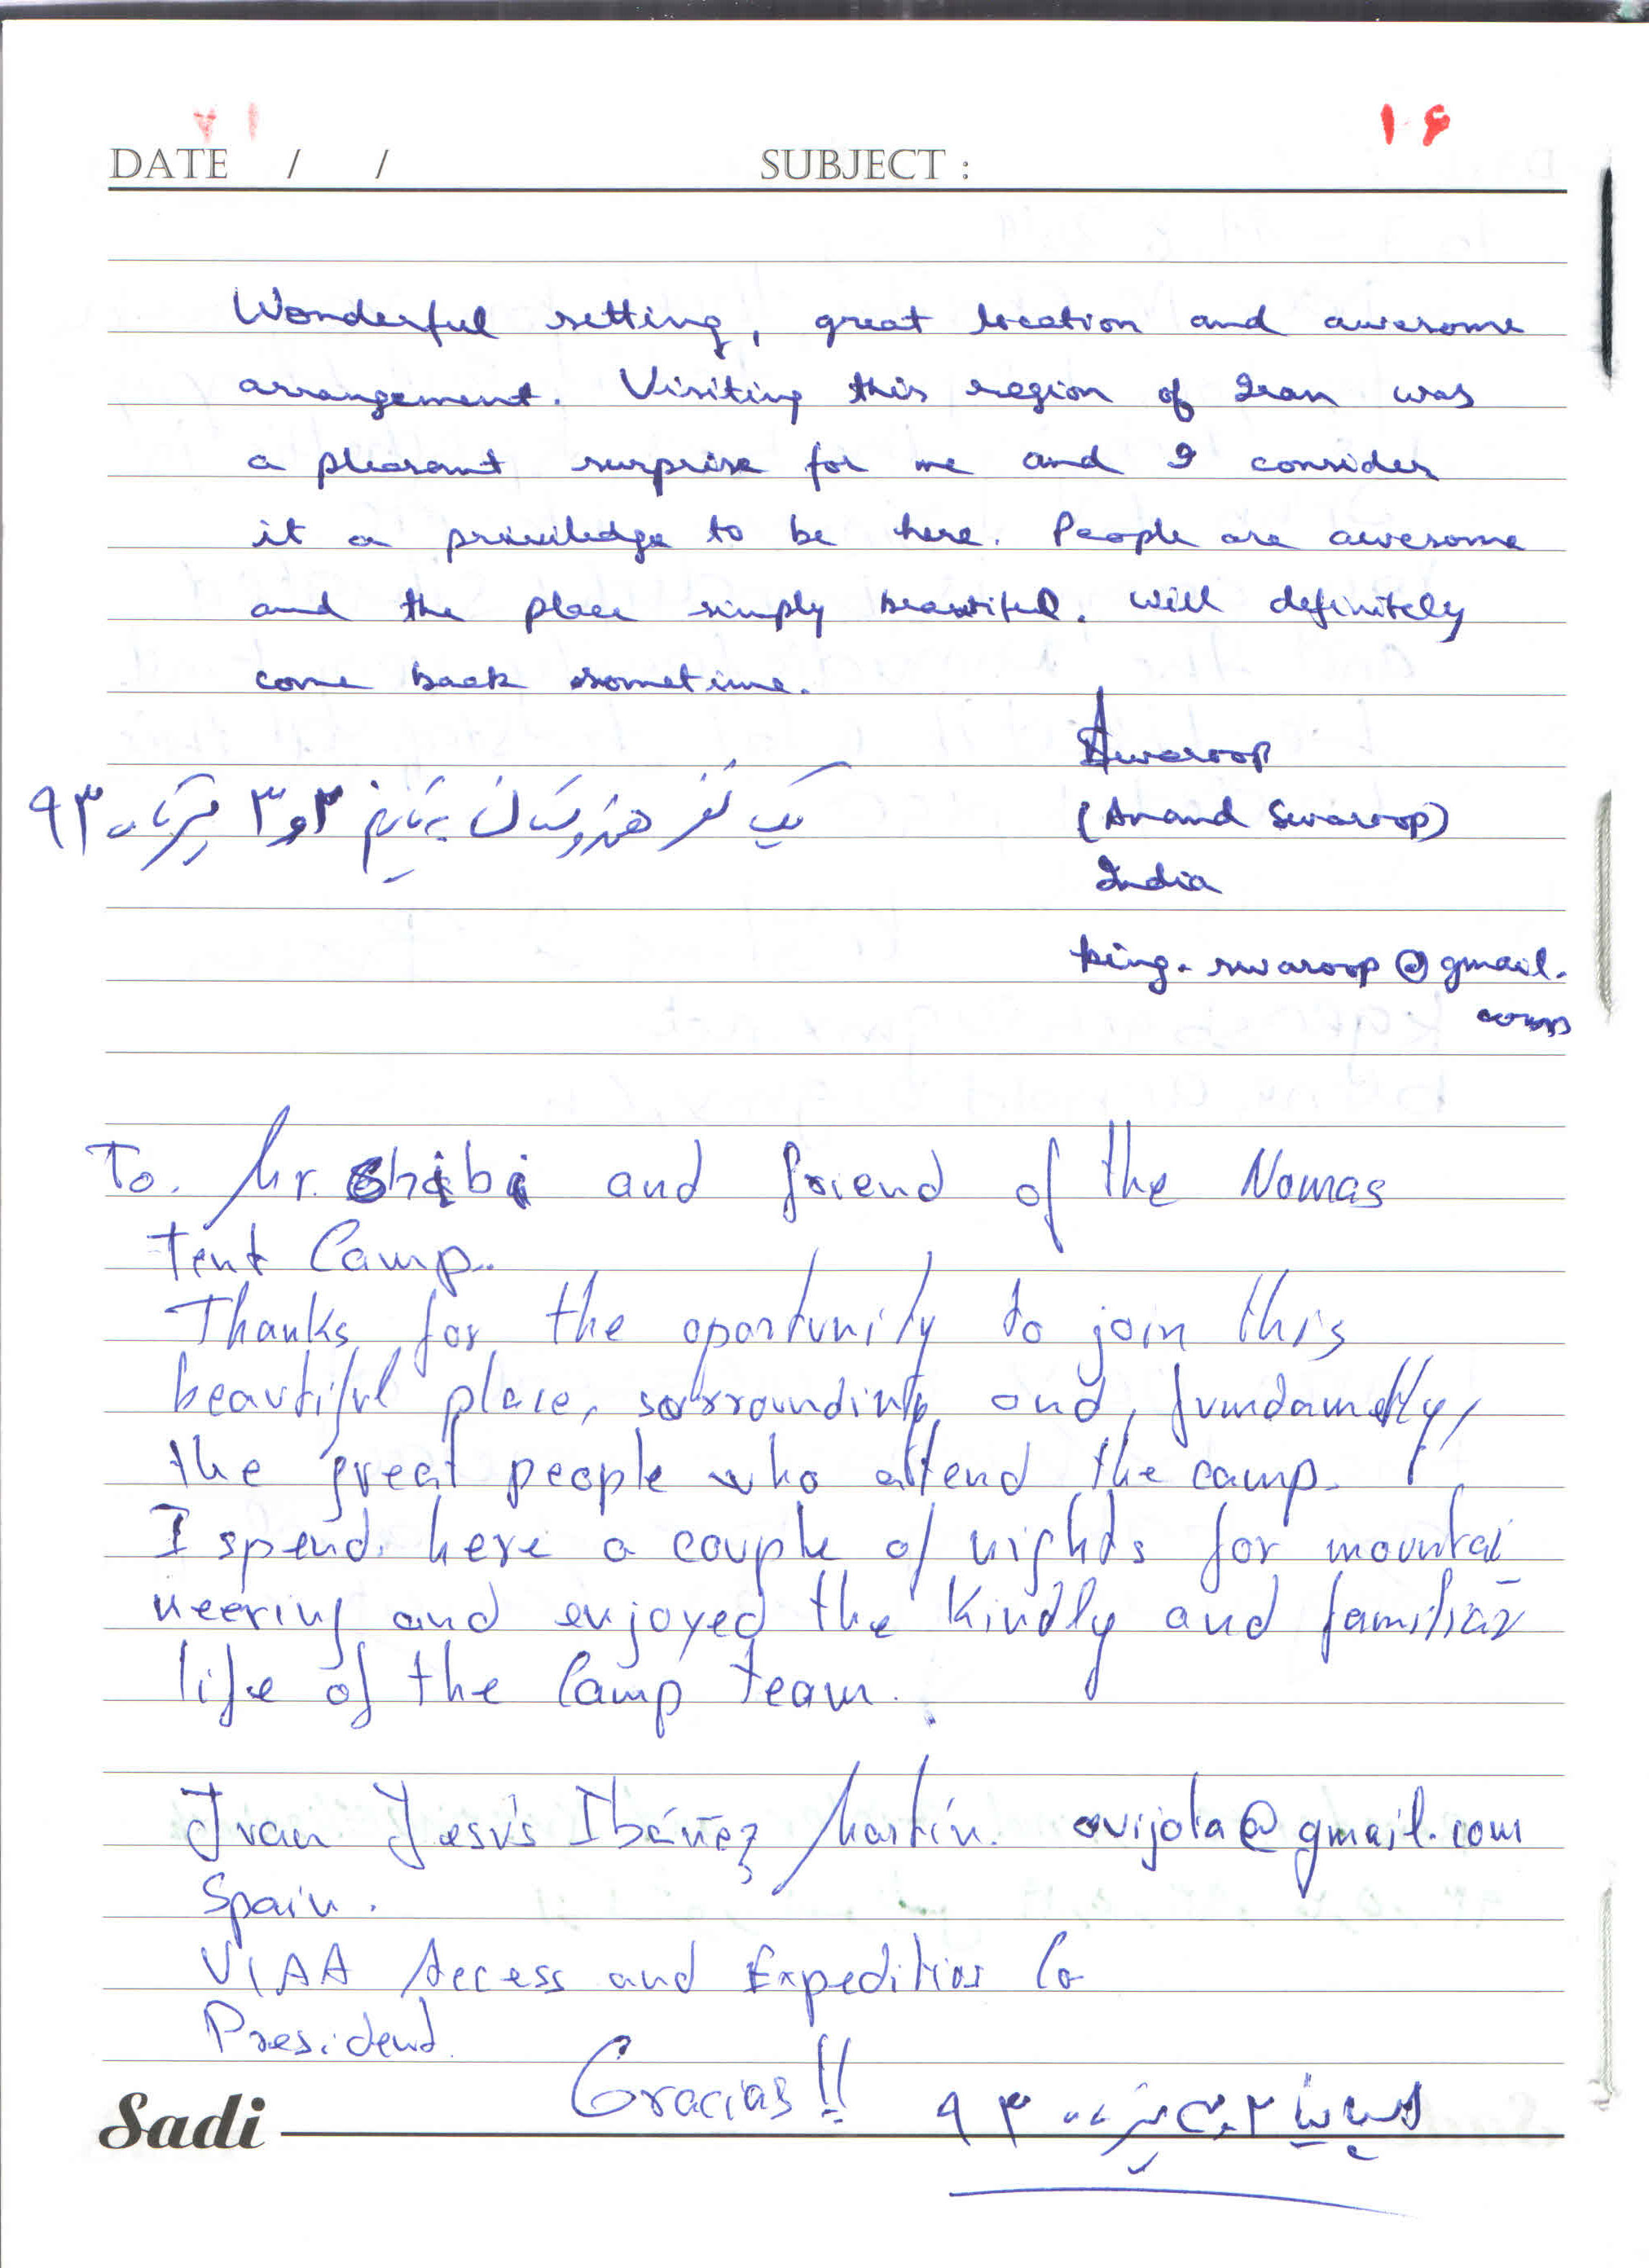 ۱۶
DATE / / SUBJECT :
Wonderful setting, great location and awesome
arrangement. Visiting this region of Iran was
a pleasant surprise for me and I consider
it a priviledge to be here. People are awesome
and the place simply beautiful. Will definitely
come back sometime.
Swaroop
(Anand Swaroop)
یک نفر هندوستان به تاریخ ۲ و ۳ ۹۳
India
king.swaroop@gmail.
com
To. Mr. Shibi and friend of the Nomas
Tent Camp..
Thanks for the oportunity to join this
beautiful place, sorrounding and, fundamently,
the great people who attend the camp.
I spend here a couple of nights for mountai
neering and enjoyed the Kindly and familiar
life of the Camp team.
Juan Jesús Ibáñez Martín. ovijota@gmail.com
Spain.
UIAA Access and Expeditios Co
President.
Gracias!!
اسپانیا ۹۳
Sadi